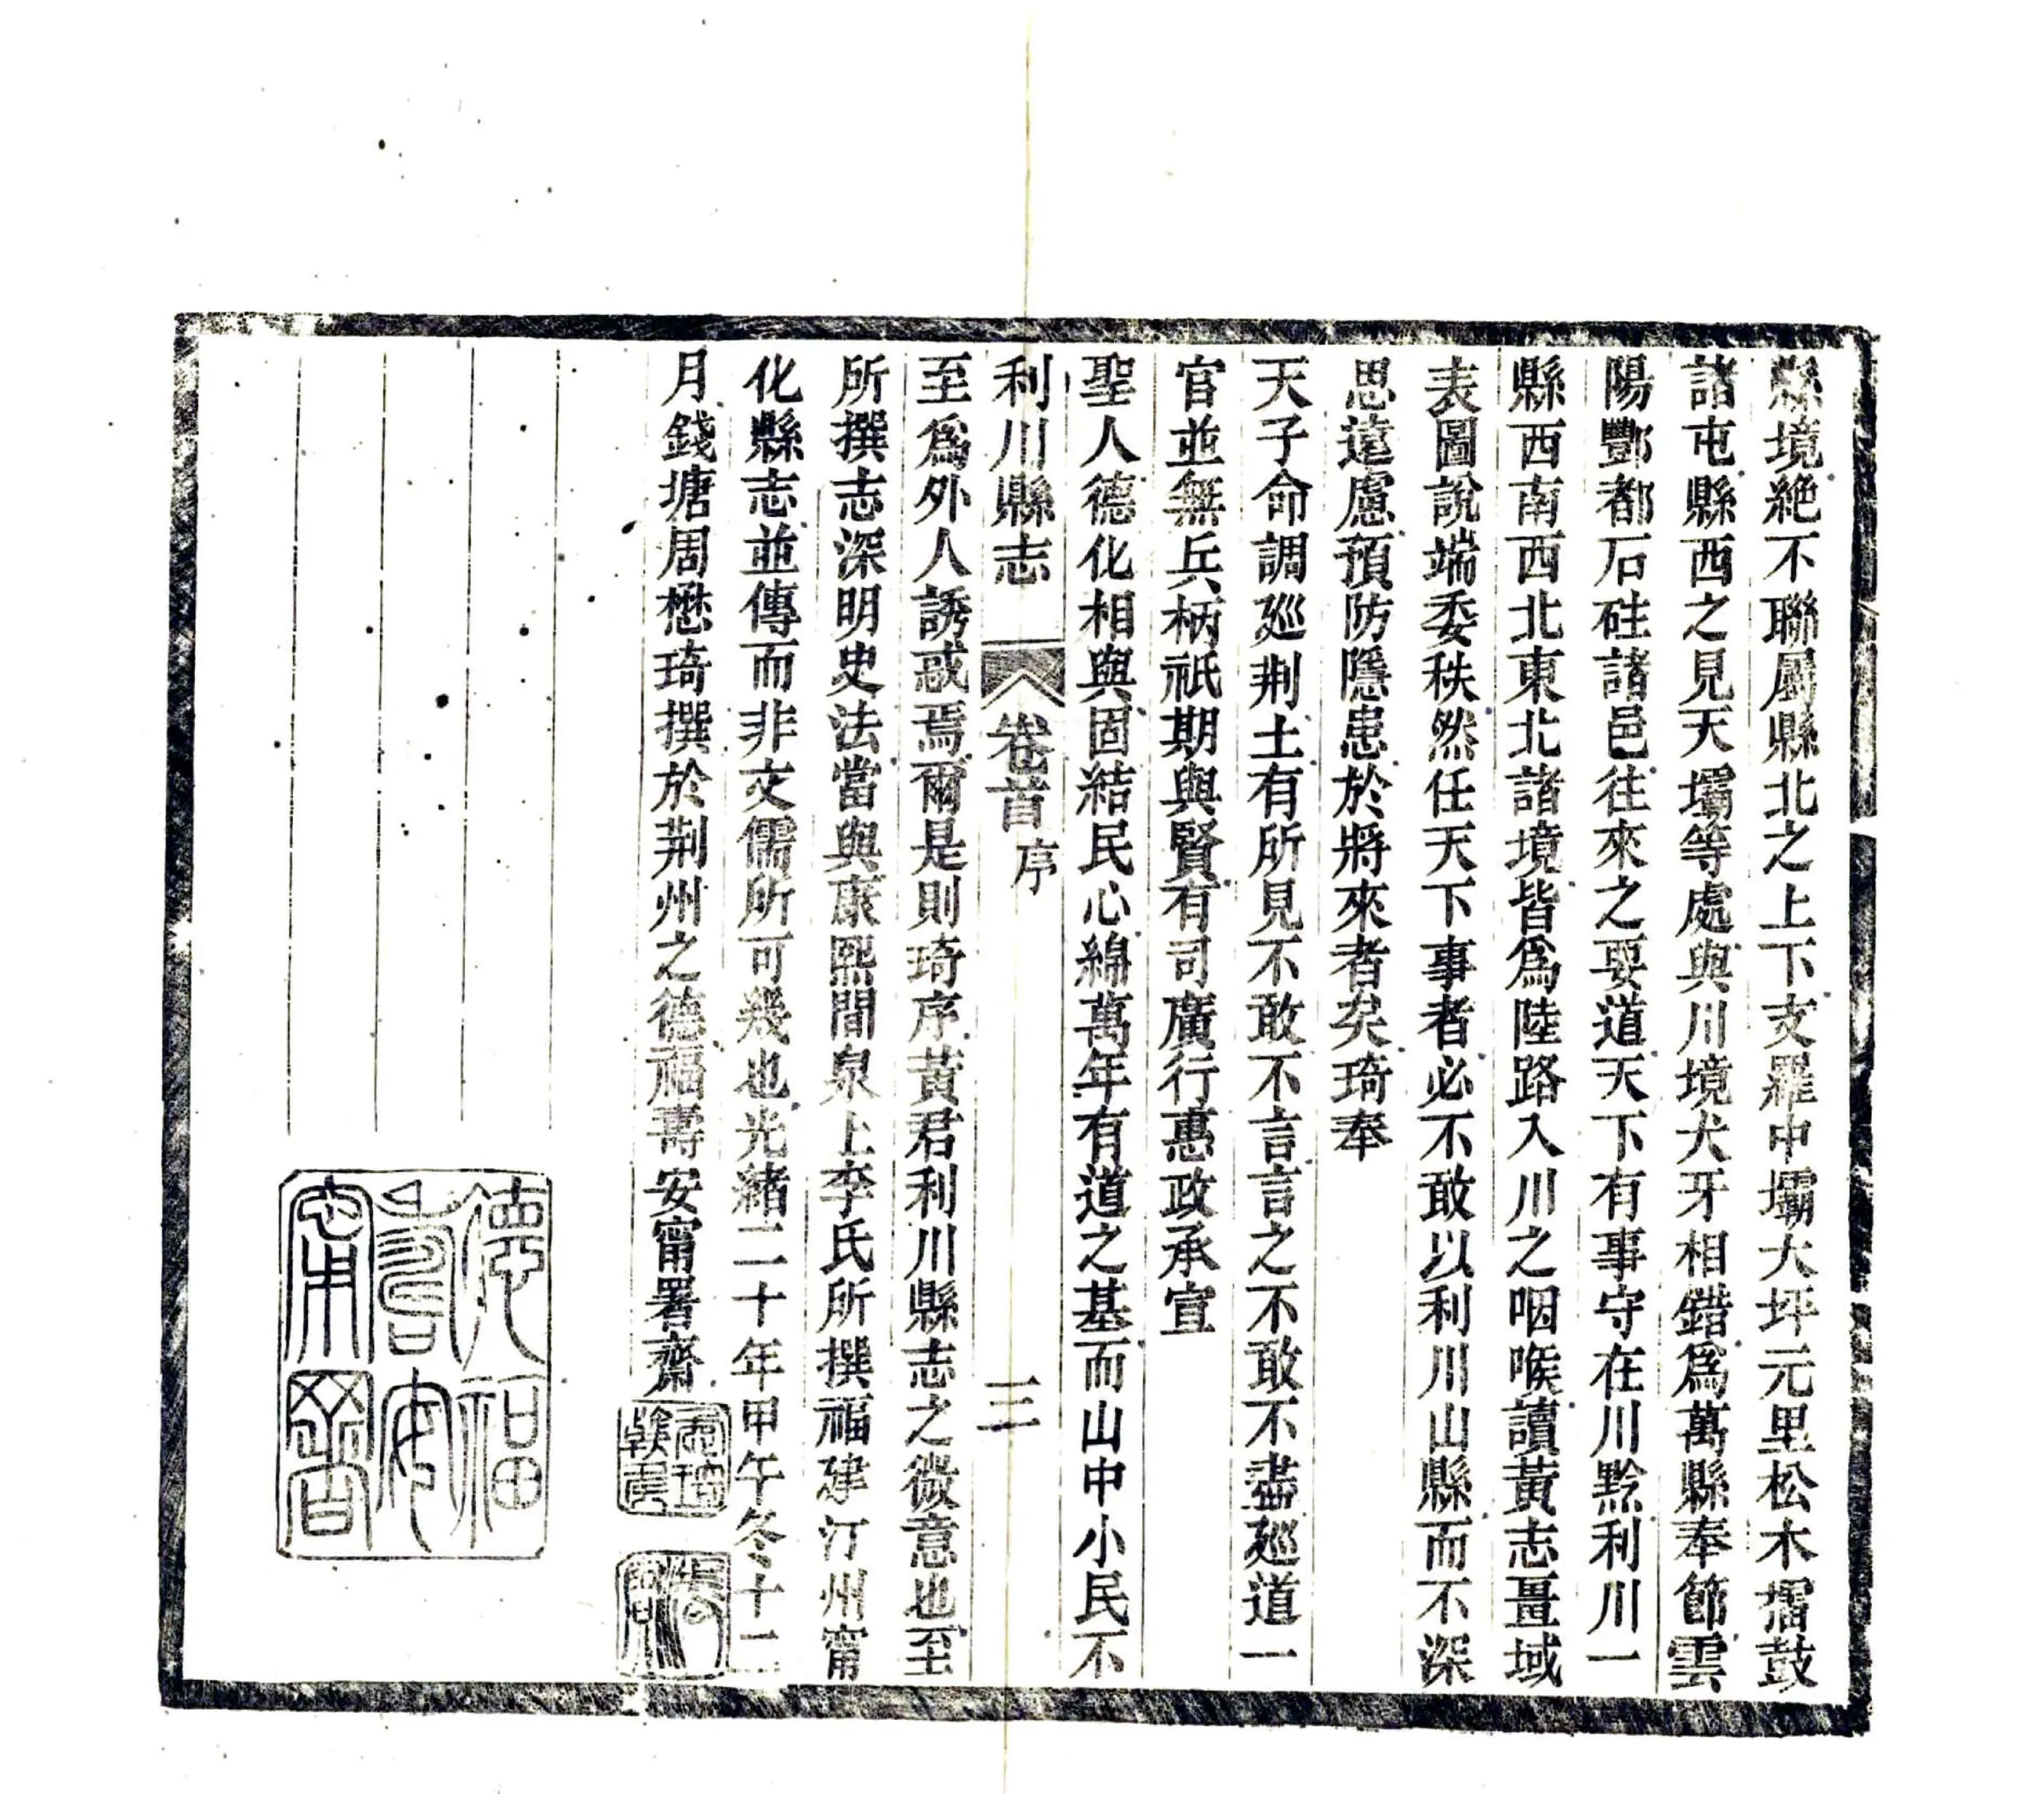 縣境絶不聯屬縣北之上下支羅中壩大坪元里松木壋鼓
諸屯縣西之見天壩等處與川境犬牙相錯爲萬縣奉節雲
陽酆都石砫諸邑往來之要道天下有事守在川黔利川一
縣西南西北東北諸境皆爲陸路入川之咽喉讀黃志畺域
表圖說端委秩然任天下事者必不敢以利川山縣而不深
思遠慮預防隱患於將來者矣琦奉
天子命調廵荆土有所見不敢不言言之不敢不盡廵道一
官並無兵柄祇期與賢有司廣行惠政承宣
聖人德化相與固結民心綿萬年有道之基而山中小民不
利川縣志 卷首 序 三
至爲外人誘惑焉爾是則琦序黃君利川縣志之微意也至
所撰志深明史法當與康熙間泉上李氏所撰福建汀州甯
化縣志並傳而非文儒所可幾也光緒二十年甲午冬十二
月錢塘周懋琦撰於荆州之德福壽安甯署齋
德福壽安甯署